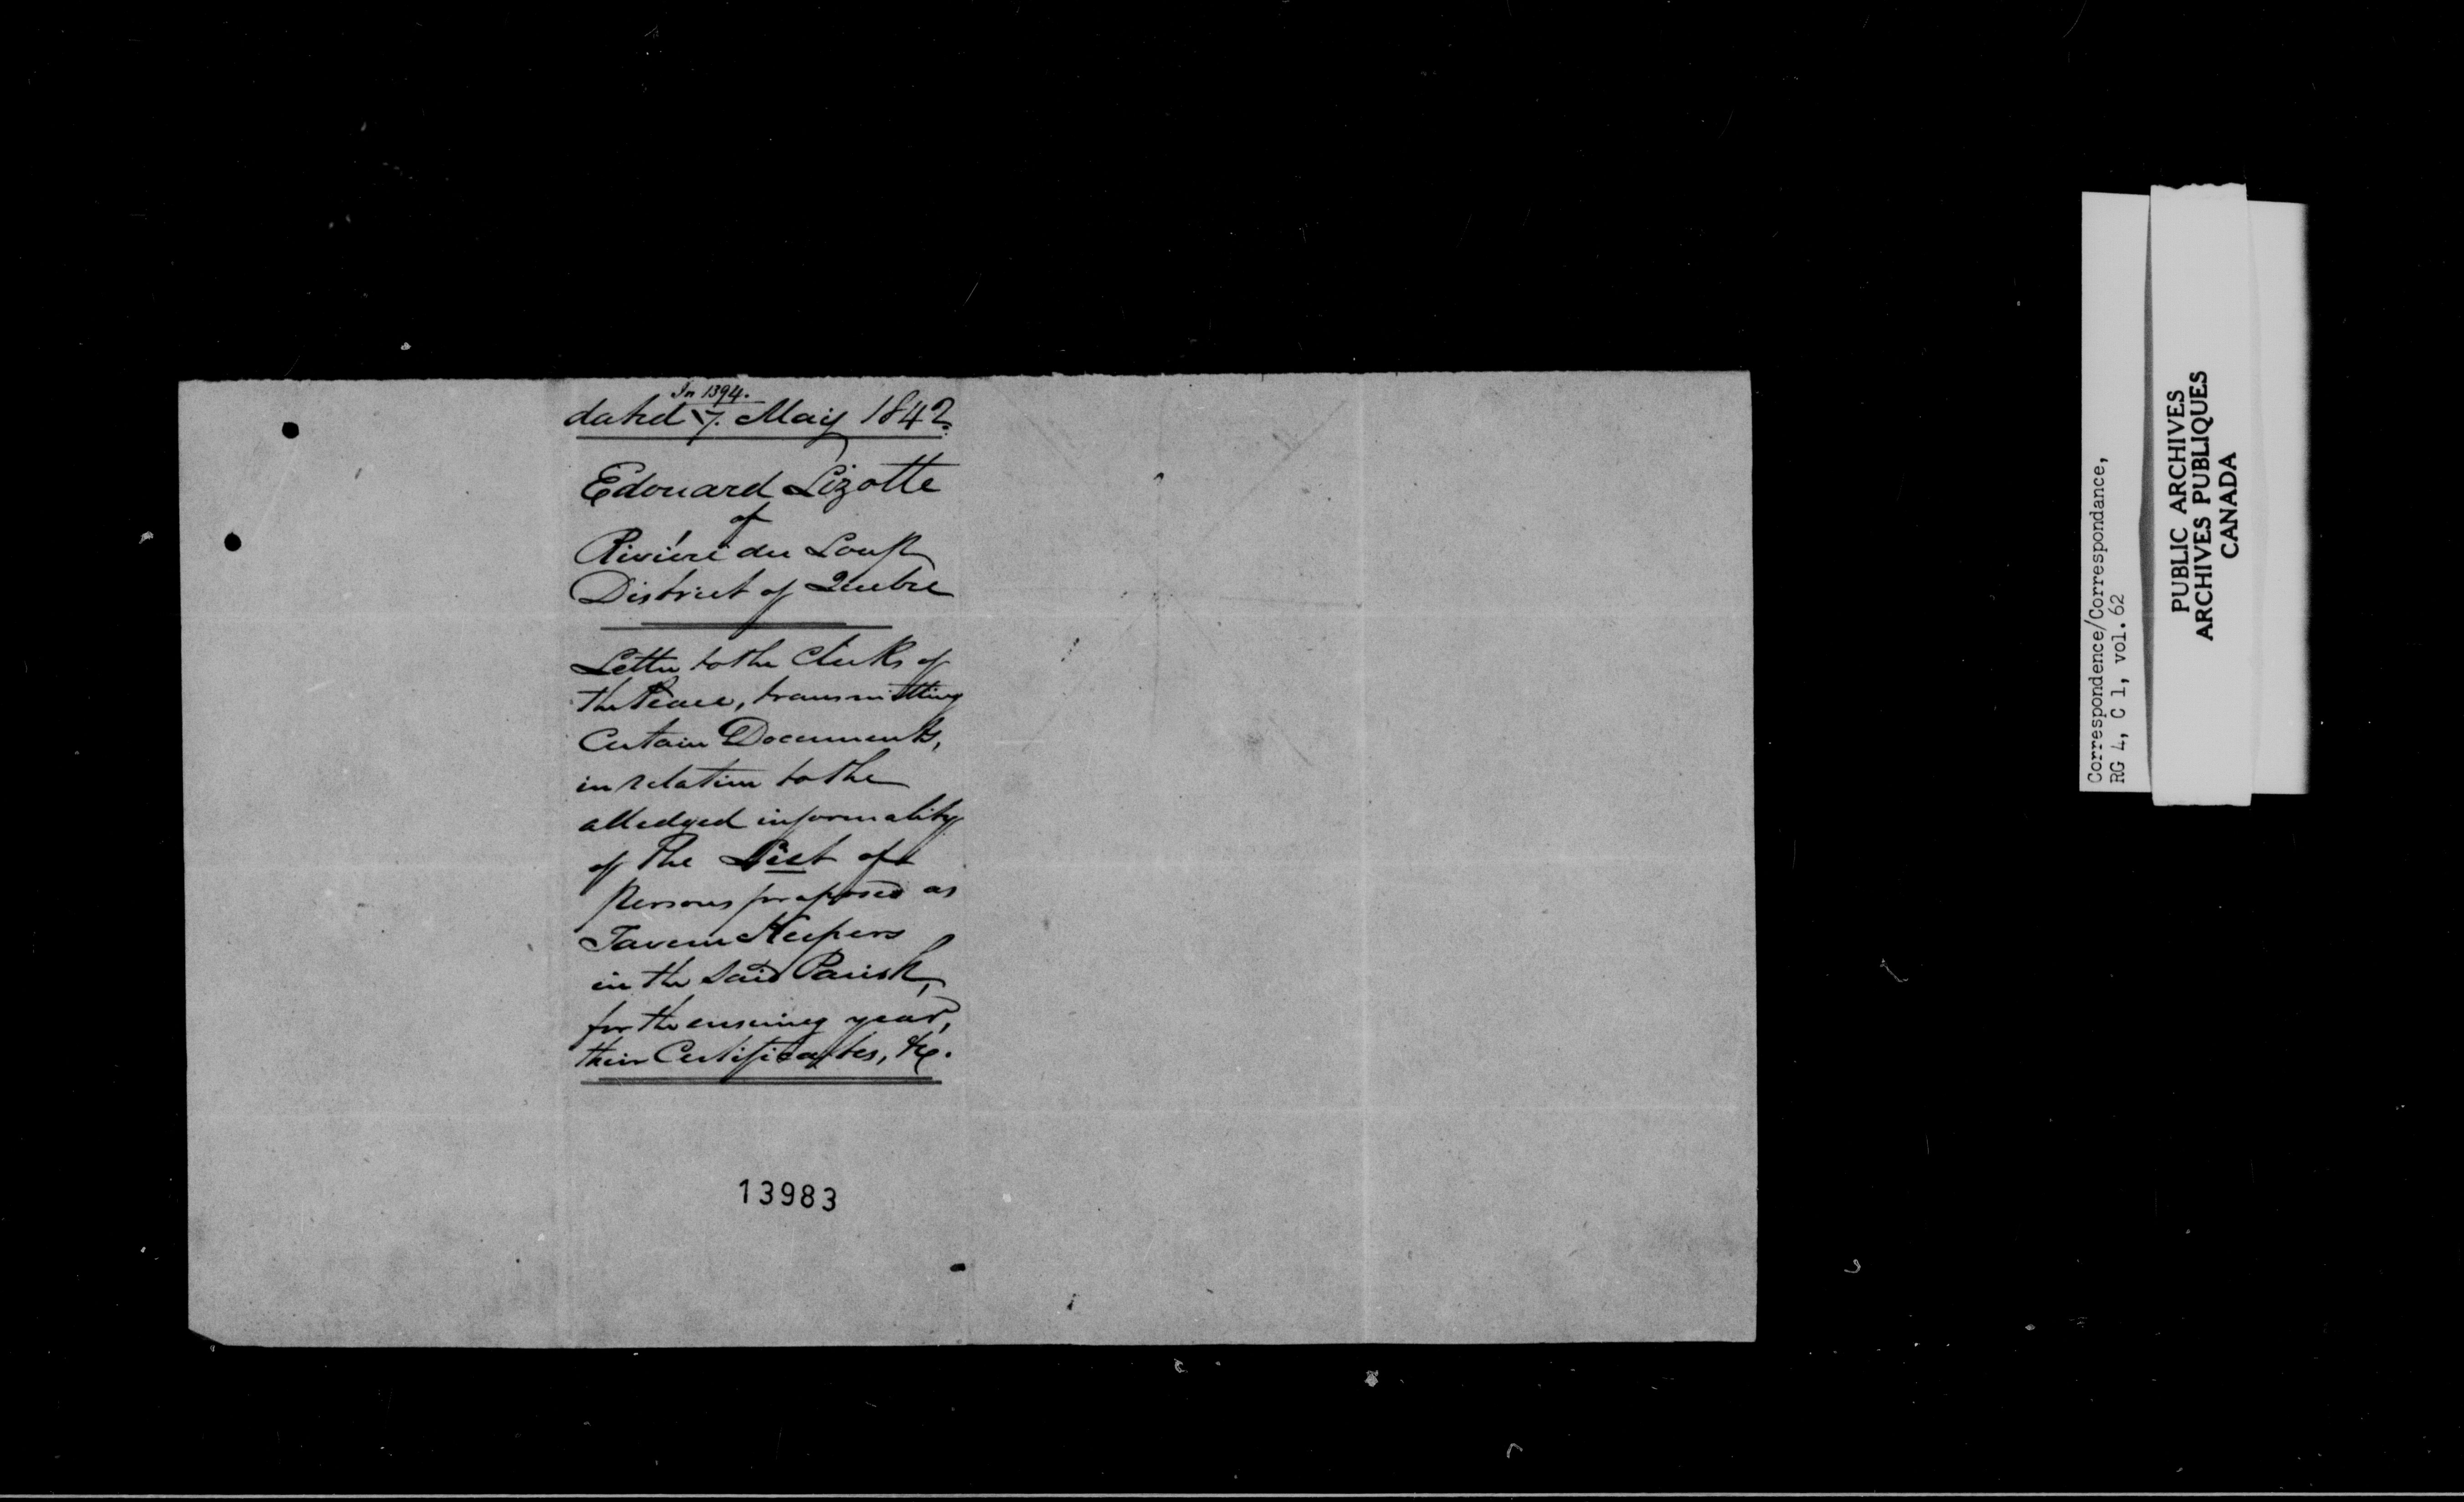 In 1394.
dated 7. May 1842.
Edouard Lizotte
of
Riviére du Loup
District of Quebec
Letter to the Clerks of
the Peace, transmitting
Certain Documents,
in relation to the
alledged informality
of the List of
persons proposed as
Tavern Keepers
in the said Parish,
for the ensuing year,
their Certificates, &c.
13983
Correspondence/Correspondance,
RG 4, C 1, vol. 62
PUBLIC ARCHIVES
ARCHIVES PUBLIQUES
CANADA